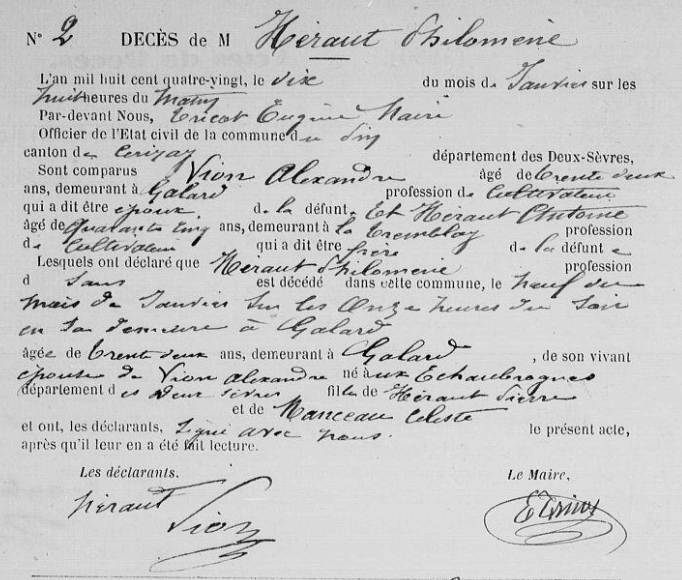 N° 2 DECÈS de M Héraut Philomène
L'an mil huit cent quatre-vingt, le dix du mois de Janvier sur les
huit heures du Matin
Par-devant Nous, Tricot Eugène Maire
Officier de l'Etat civil de la commune du Pin
canton de Cerizay département des Deux-Sèvres,
Sont comparus Vion Alexandre âgé de trente deux
ans, demeurant à Galard profession de Cultivateur
qui a dit être époux de la défunte Et Héraut Antoine
âgé de quarante cinq ans, demeurant à la Tremblay profession
de Cultivateur qui a dit être frère de la défunte
Lesquels ont déclaré que Héraut Philomène profession
d Sans est décédé dans cette commune, le neuf du
mois de Janvier sur les Onze heures du Soir
en sa demeure à Galard
âgée de trente deux ans, demeurant à Galard , de son vivant
épouse de Vion Alexandre né aux Echaubrognes
département des Deux Sèvres fille de Héraut Pierre
et de Manceau Céleste
et ont, les déclarants, signé avec nous le présent acte,
après qu'il leur en a été fait lecture.
Les déclarants. Le Maire,
héraut Vion E Tricot